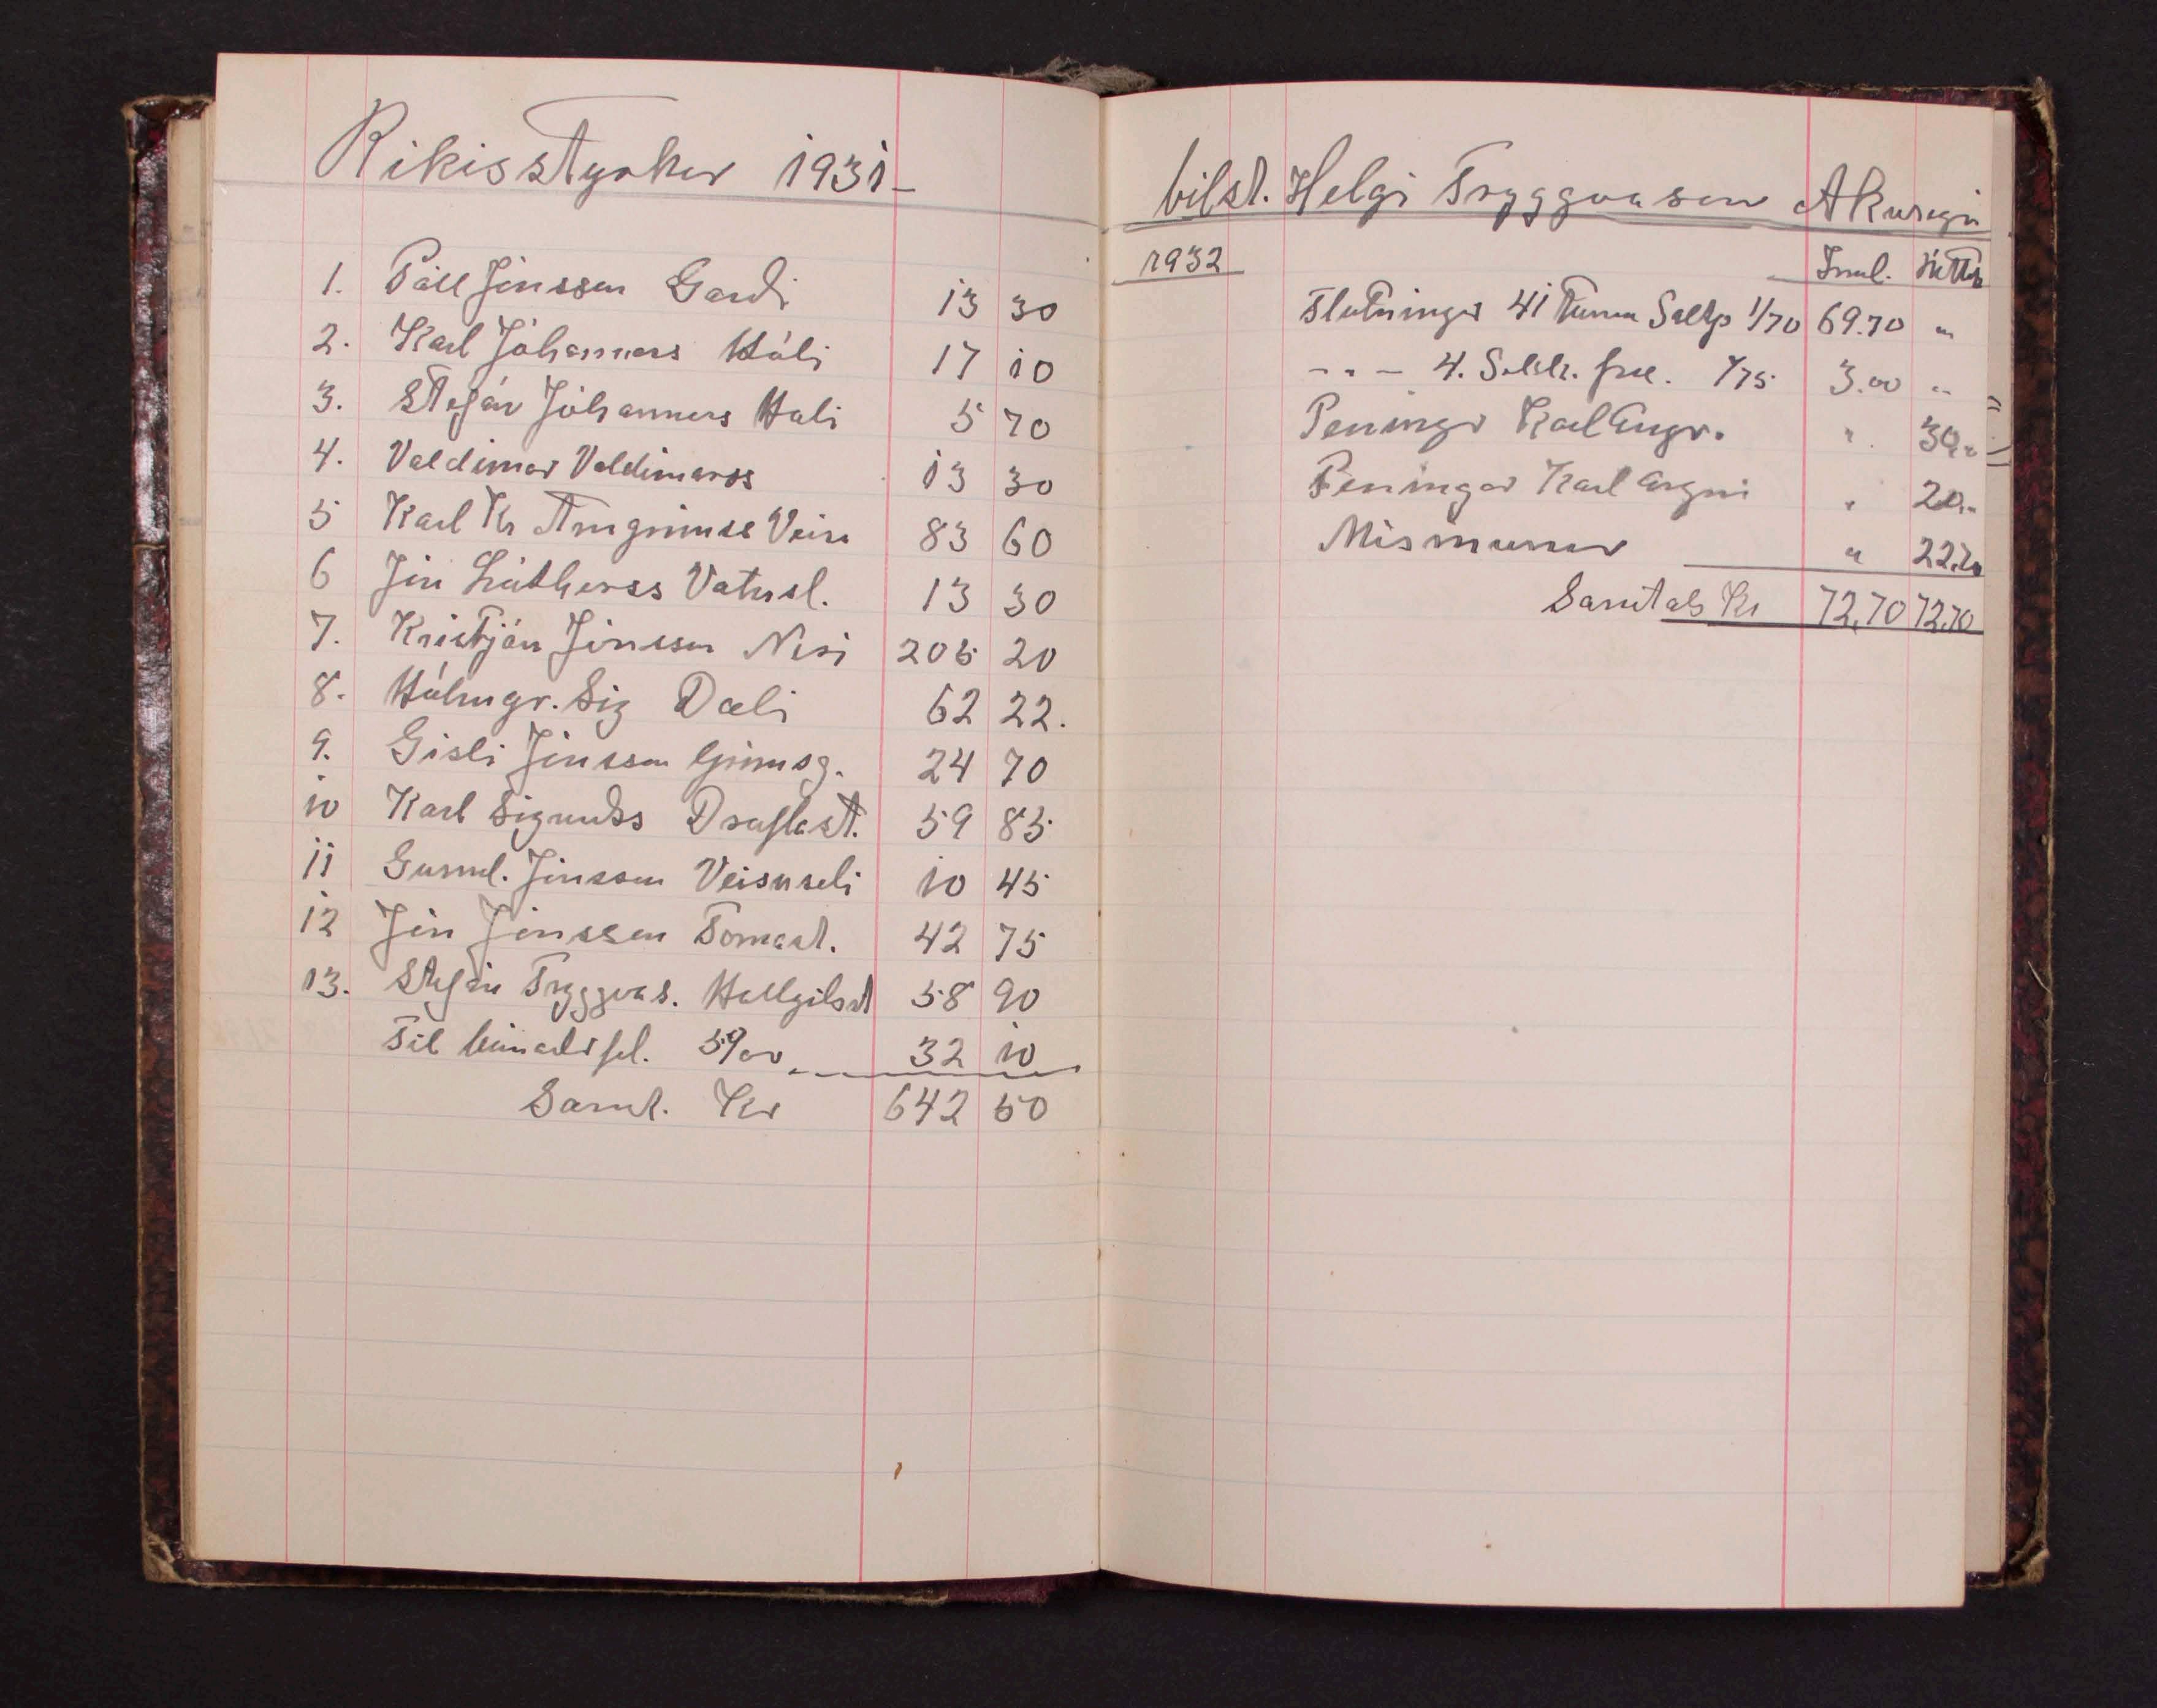 Rikisstyrkur 1931 -
1. Páll Jónsson Garði 13 30
2. Karl Jóhanness Hóli 17 10
3. Stefán Jóhanness Hóli 5 70
4. Valdimar Valdimarss 13 30
5 Karl Kr Arngrímss Veisu 83 60
6 Jón Lútherss Vatnsl. 13 30
7. Kristján Jónsson Nesi 205 20
8. Hólmgr. Sig Dæli 62 22.
9. Gísli Jónsson Grímsg. 24 70
10 Karl Sigurðss Draflast. 59 85
11 Gunnl. Jónsson Veisuseli 10 45
12 Jón Jónsson Fornast. 42 75
13. Stefán Tryggvas. Hallgilsst 58 90
Til búnaðarfél. 5% 32 10
Samt. Kr 642 50
bilst. Helgi Tryggvason Akureyri
1932 Innl. Úttek
Flutningur 41 Tunnu Saltp 1/70 69.70 "
- " - 4. fræ. 1/75 3.00 "
Peningar Karl Arngr. " 30,"
Peningar Karl Arngri " 20,"
Mismunur " 22,70
Samtals Kr 72,70 72,70